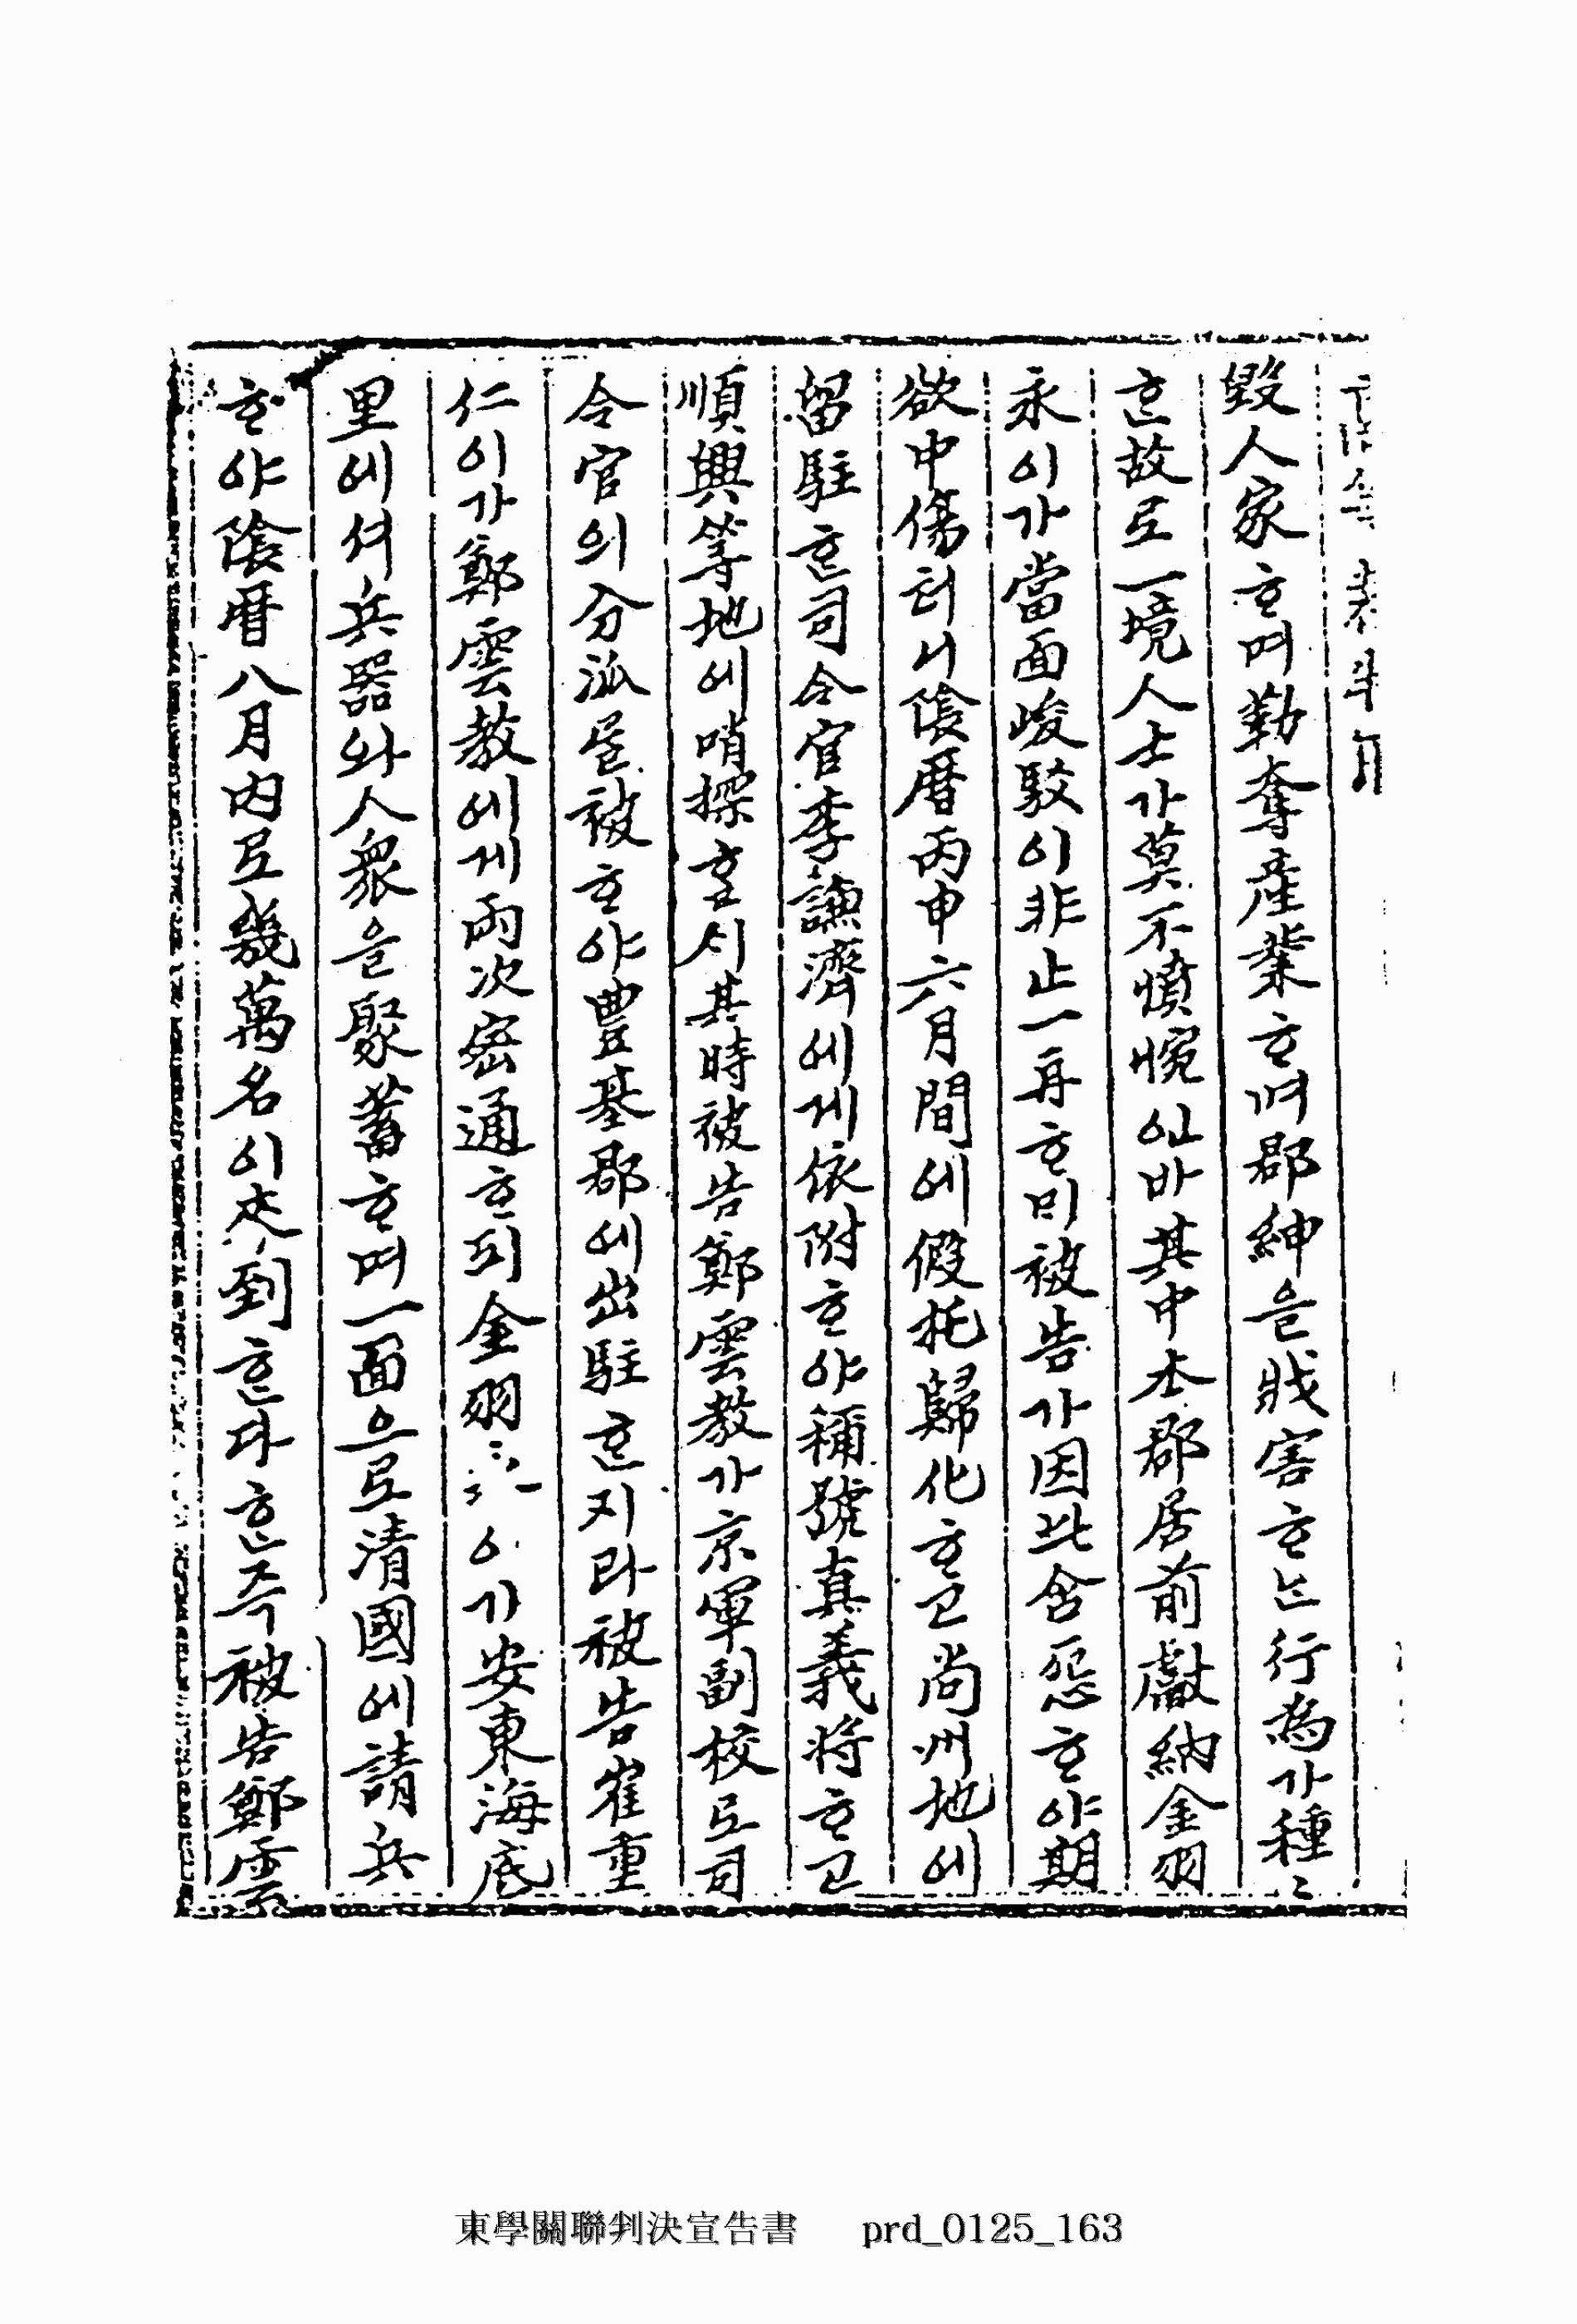 毀人家ᄒᆞ며勒奪産業ᄒᆞ며郡紳을戕害ᄒᆞᄂᆞᆫ行爲가種々
ᄒᆞᆫ故로一境人士가莫不憤惋인바其中本郡居前獻納金羽
永이가當面峻駁이非止一再ᄒᆞᄆᆡ被告가因此含惡ᄒᆞ야期
欲中傷터니陰曆丙申六月間에假托歸化ᄒᆞ고尙州地에
留駐ᄒᆞᆫ司令官李謙濟에게依附ᄒᆞ야稱號眞義將ᄒᆞ고
順興等地에哨探ᄒᆞᆯᄉᆡ其時被告鄭雲敎가京軍副校로司
令官의分派를被ᄒᆞ야豊基郡에出駐ᄒᆞᆫ지라被告崔重
仁이가鄭雲敎에게兩次密通ᄒᆞ되金羽이가安東海底
里에셔兵器와人衆을聚蓄ᄒᆞ며一面으로淸國에請兵
ᄒᆞ야陰曆八月內로幾萬名이來到ᄒᆞᆫ다ᄒᆞᆫ즉被告鄭雲
東學關聯判決宣告書 prd_0125_163